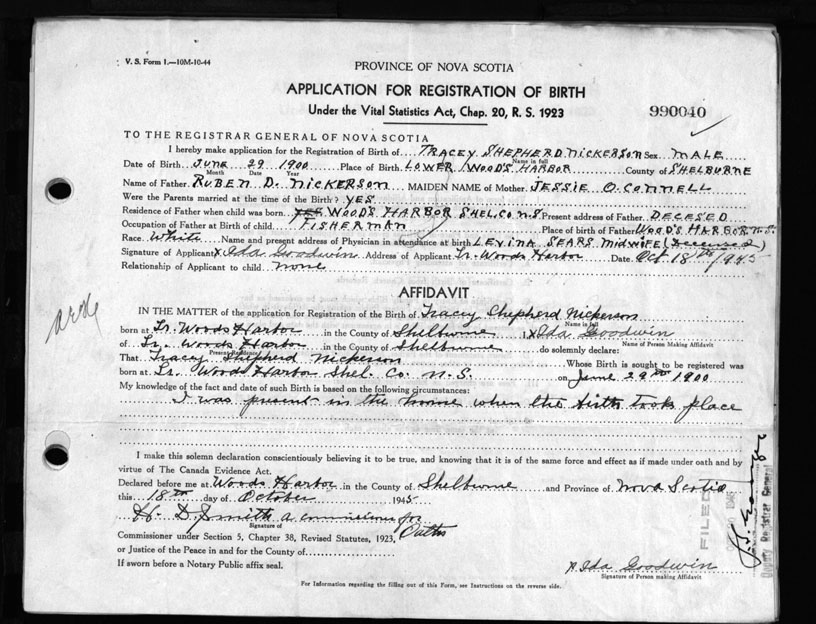 V. S. Form 1.—10M-10-44
PROVINCE OF NOVA SCOTIA
APPLICATION FOR REGISTRATION OF BIRTH
Under the Vital Statistics Act, Chap. 20, R. S. 1923
990040
TO THE REGISTRAR GENERAL OF NOVA SCOTIA
I hereby make application for the Registration of Birth of TRACEY SHEPHERD NICKERSON Sex MALE
Name in full
Date of Birth JUNE 29 1900 Place of Birth LOWER WOOD'S HARBOR County of SHELBURNE
Month Date Year
Name of Father RUBEN D. NICKERSON MAIDEN NAME of Mother JESSIE O'CONNELL
Were the Parents married at time of the Birth? YES
Residence of Father when child was born YES WOOD'S HARBOR SHEL.CO N.S. Present address of Father DECESED
Occupation of Father at Birth of child FISHERMAN Place of birth of Father WOOD'S HARBOR N.S.
Race White Name and present address of Physician in attendance at birth LEVINA SEARS Midwife (Deceased)
Signature of Applicant X Ida Goodwin Address of Applicant Lr. Woods Harbor Date Oct 18th 1945
Relationship of Applicant to child none
AFFIDAVIT
IN THE MATTER of the application for Registration of the Birth of Tracey Shepherd Nickerson
Name in full
born at Lr. Woods Harbor in the County of Shelburne I X Ida Goodwin
Name of Person Making Affidavit
of Lr. Woods Harbor in the County of Shelburne do solemnly declare:
Present Residence
That Tracey Shepherd Nickerson Whose Birth is sought to be registered was
born at Lr. Woods Harbor Shel. Co. N.S. on June 29th 1900
My knowledge of the fact and date of such Birth is based on the following circumstances:
I was present in the home when the birth took place
I make this solemn declaration conscientiously believing it to be true, and knowing that it is of the same force and effect as if made under oath and by
virtue of The Canada Evidence Act.
Declared before me at Woods Harbor in the County of Shelburne and Province of Nova Scotia
this 18th day of October 1945
H. D. Smith a commissioner for Oaths
Signature of
Commissioner under Section 5, Chapter 38, Revised Statutes, 1923,
or Justice of the Peace in and for the County of
If sworn before a Notary Public affix seal.
X Ida Goodwin
Signature of Person making Affidavit
For Information regarding the filling out of this Form, see Instructions on the reverse side.
FILED
Deputy Registrar General